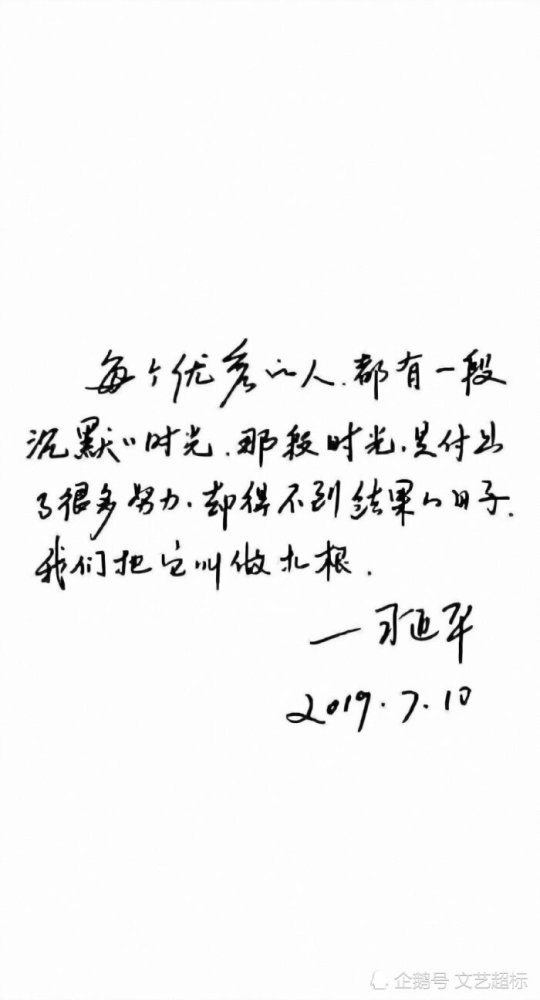 每个优秀的人.都有一段
沉默的时光.那段时光.是付出
了很多努力.却得不到结果的日子.
我们把它叫做扎根.
2019.7.10
企鹅号 文艺超标